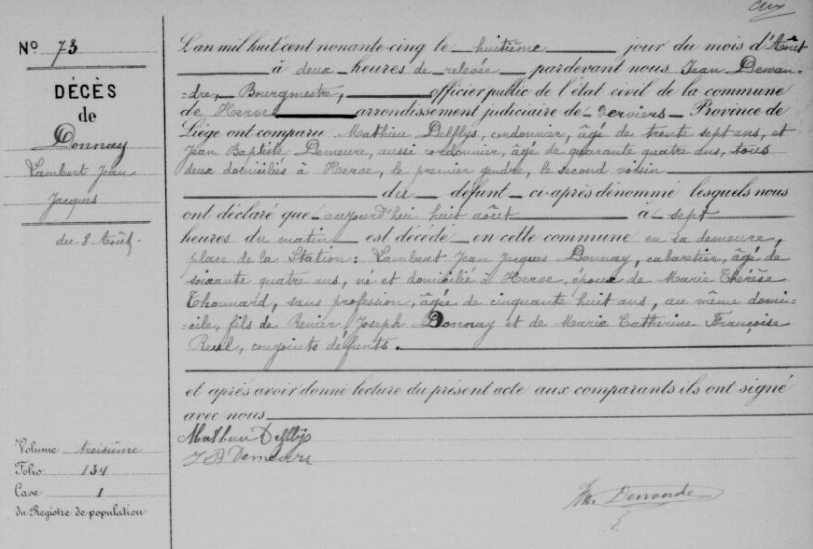 N° 73
DÉCÈS
de
Donnay
Lambert Jean
Jacques
du 8 Août.
Volume troisième
Folio 134
Case 1
du Registre de population
L'an mil huit cent nonante-cinq le huitième jour du mois d'Août
à deux heures de relevée pardevant nous Jean Dewan-
-dre, Bourgmestre, officier public de l'état civil de la commune
de Herve arrondissement judiciaire de Verviers Province de
Liège ont comparu Mathieu Delflys, cordonnier, âgé de trente sept ans, et
Jean Baptiste Demeure, aussi cordonnier, âgé de quarante quatre ans, tous
deux domiciliés à Herve, le premier gendre, le second voisin
du défunt ci-après dénommé lesquels nous
ont déclaré que aujourd'hui huit août à sept
heures du matin est décédé en cette commune en sa demeure,
place de la Station: Lambert Jean Jacques Donnay, cabaretier, âgé de
soixante quatre ans, né et domicilié à Herve, époux de Marie Thérèse
Thonnard, sans profession, âgée de cinquante huit ans, au même domi-
-cile, fils de Renier Joseph Donnay et de Marie Catherine Françoise
conjoints défunts.
et après avoir donné lecture du présent acte aux comparants ils ont signé
avec nous
Mathieu Delflys
J B Demeure
Dewandre